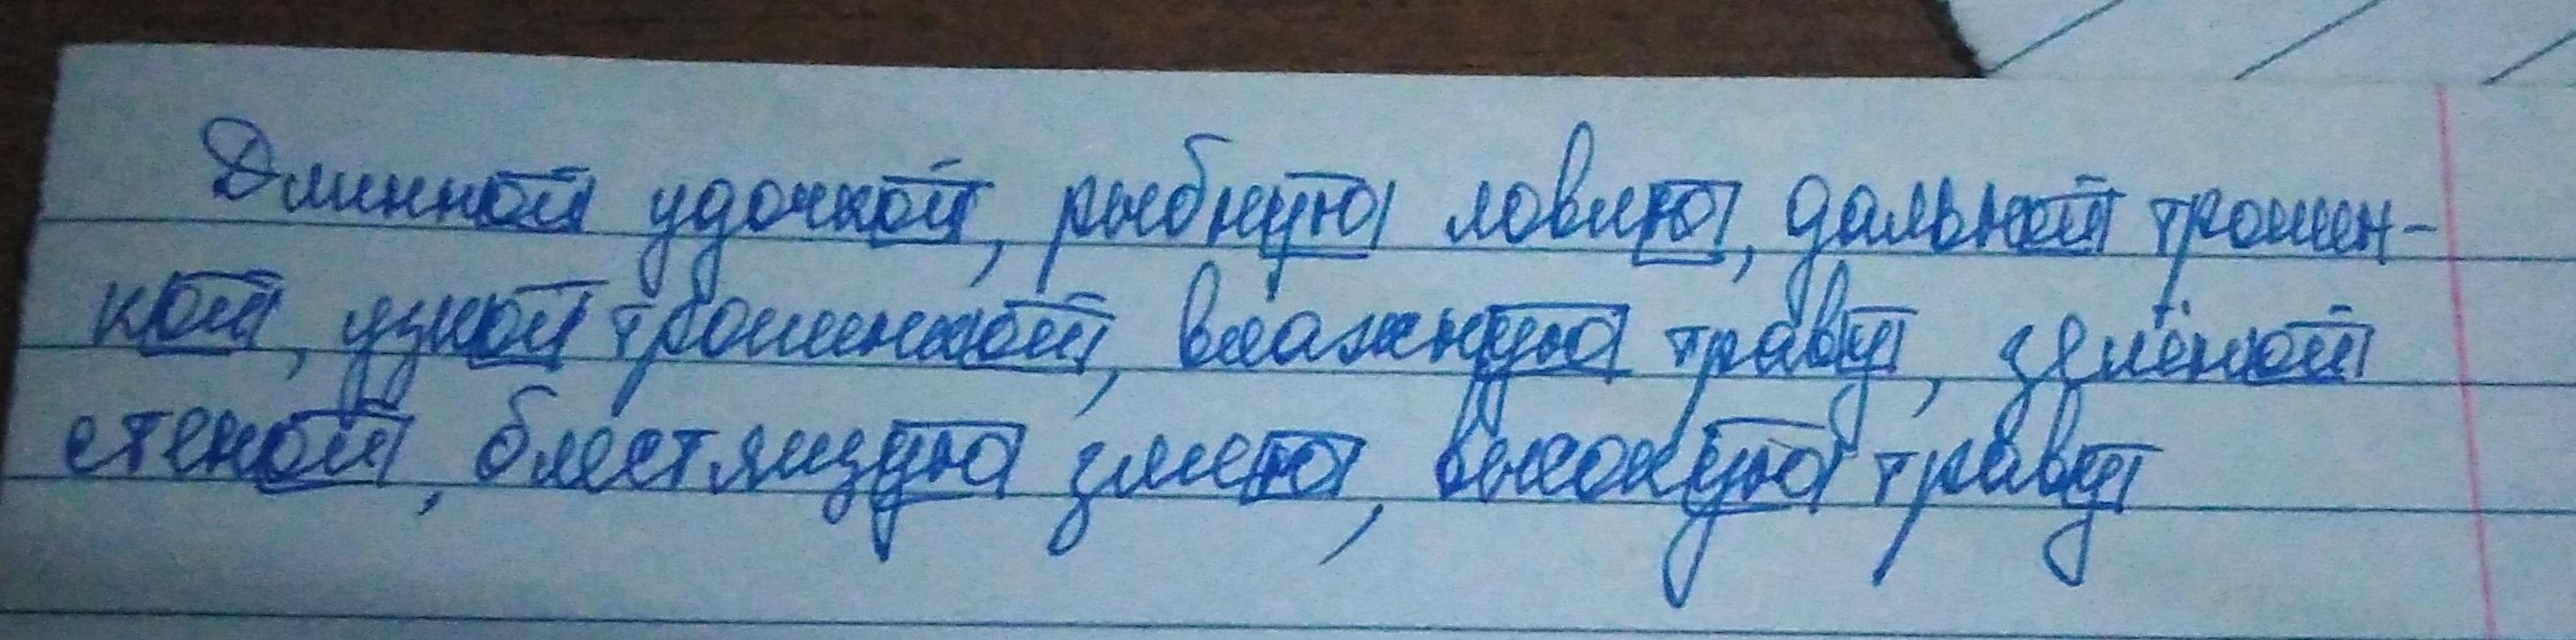 Длинной удочкой, рыбную ловлю, дальней трошен-
кой, узкой трошенкой, влажную траву, зелёной
стеной, блестящую змею, высокую траву